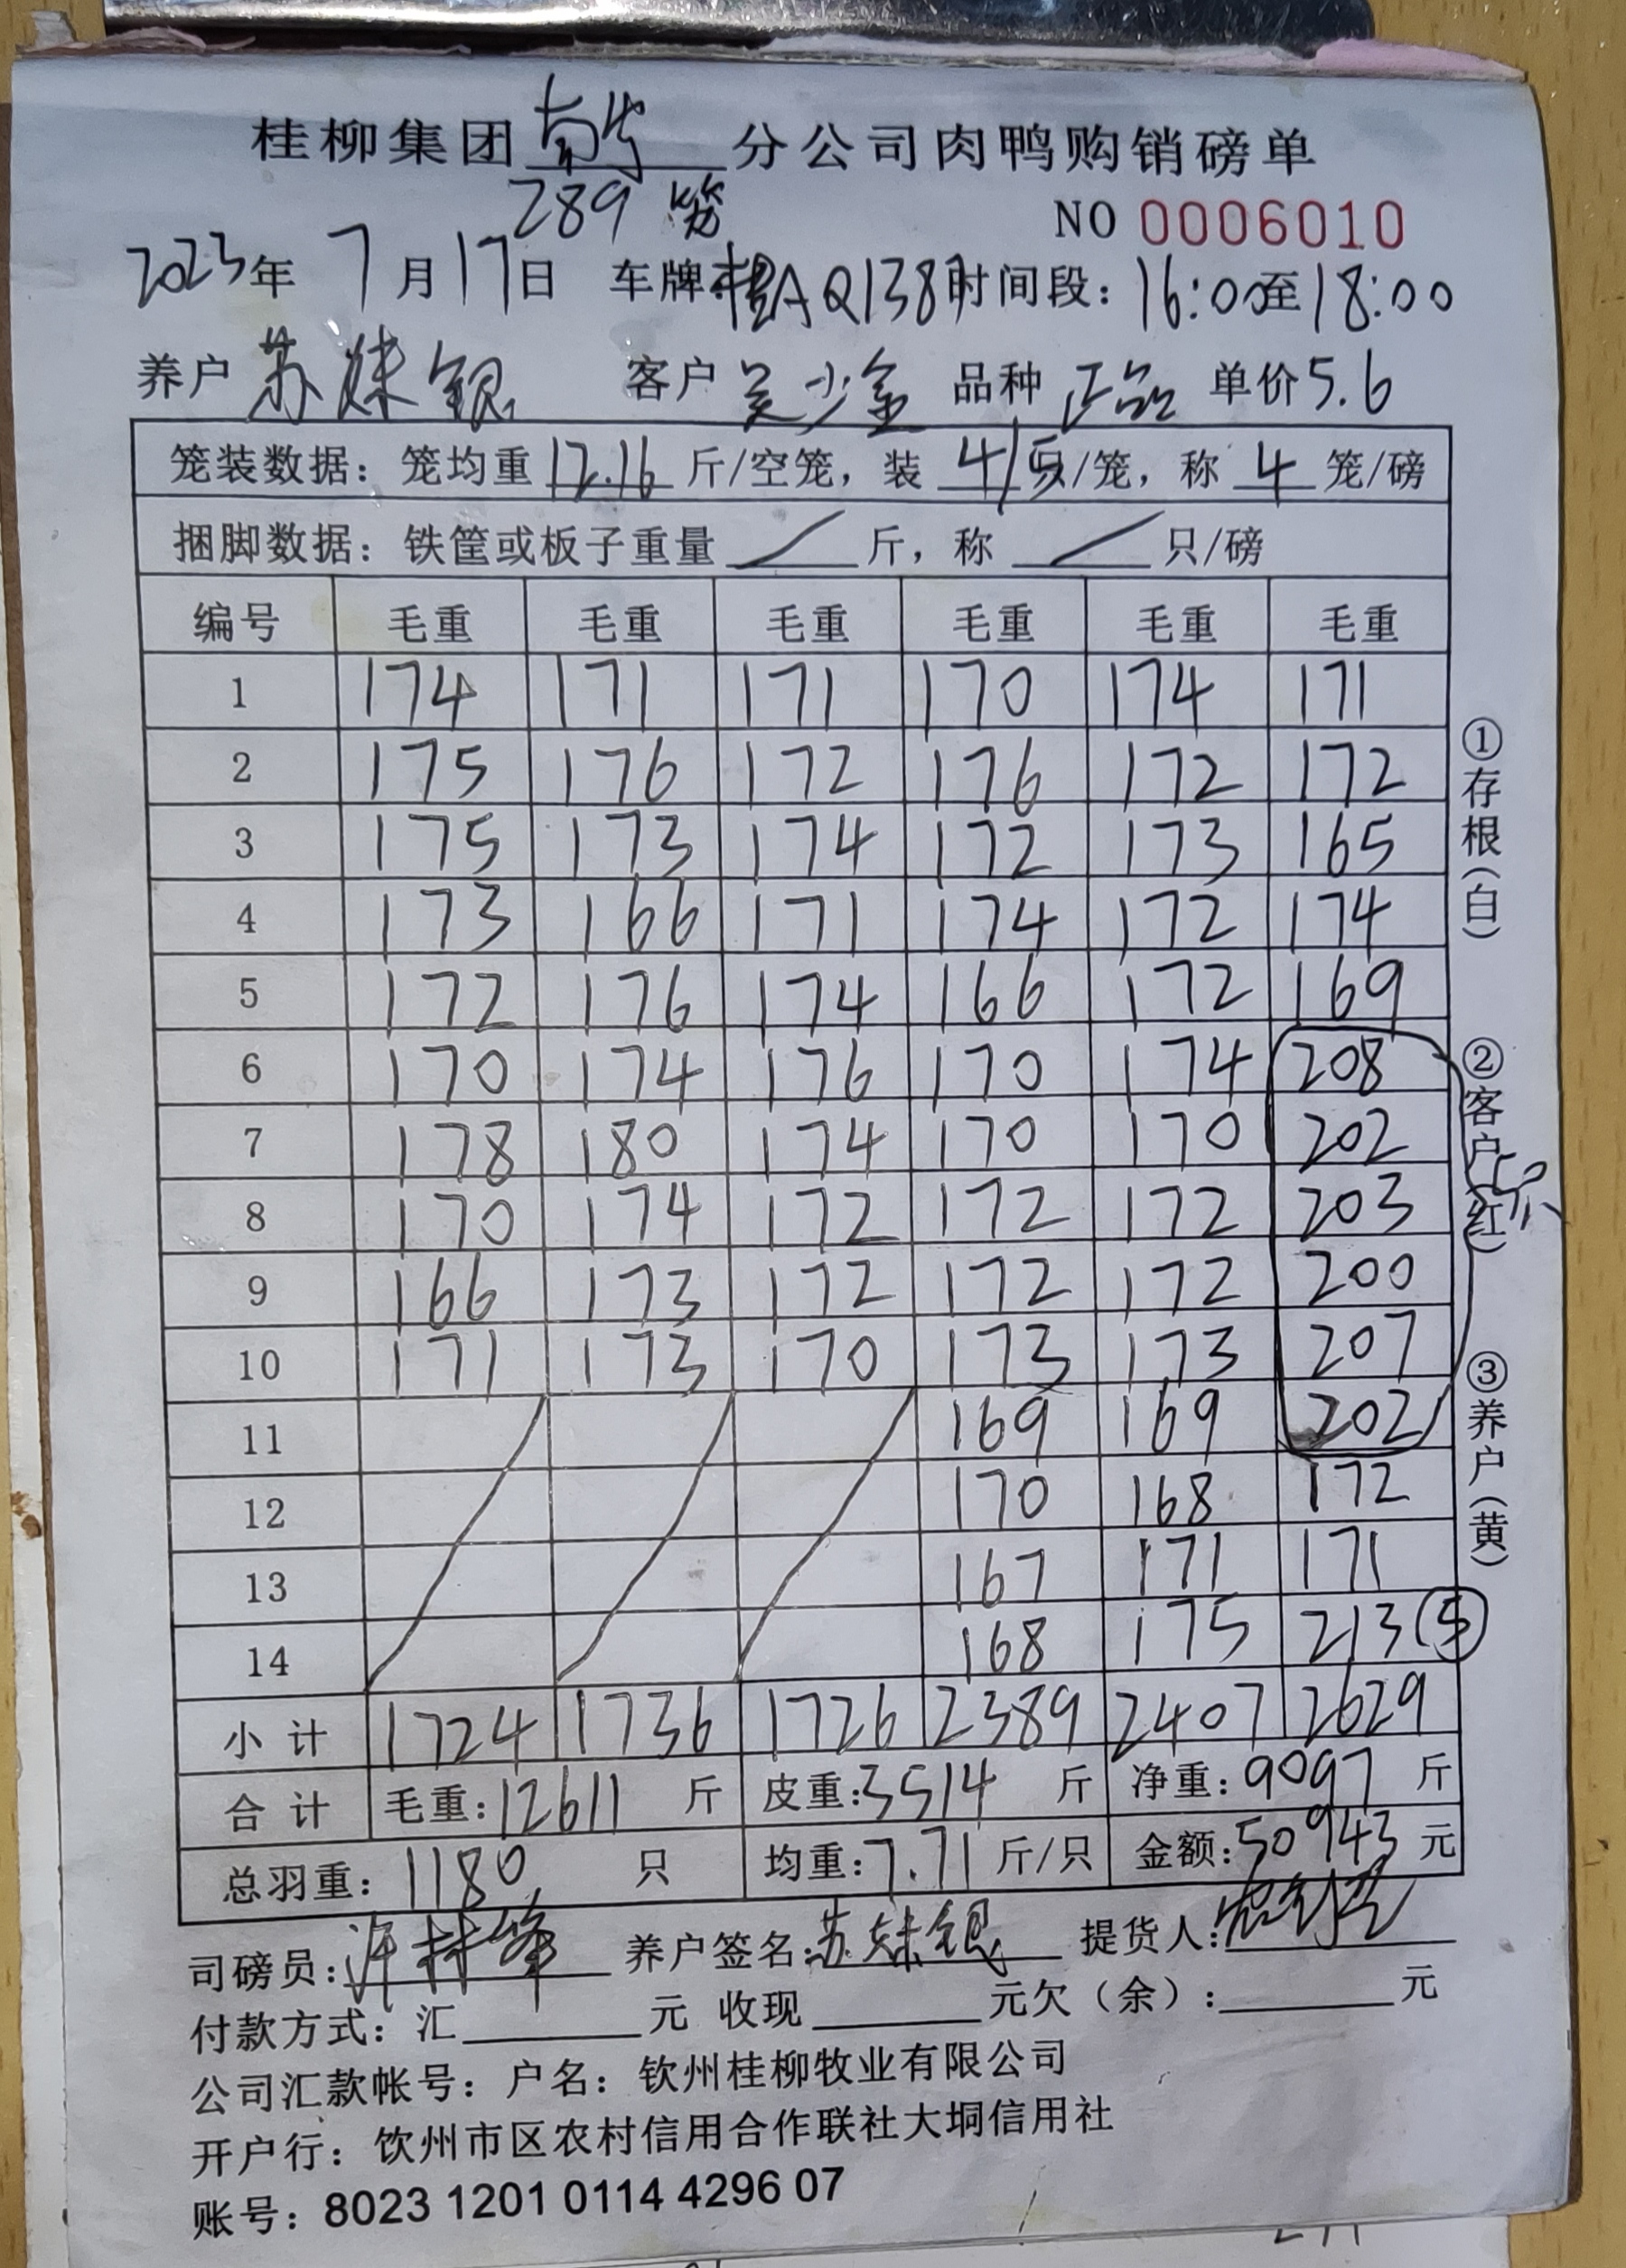 桂柳集团南宁分公司肉鸭购销磅单
289 笼
NO 0006010
2023年 7月17日 车牌:桂AQ1387时间段:16:00至18:00
养户 苏妹银 客户 吴少金 品种 正品 单价5.6
笼装数据:笼均重 12.16 斤/空笼,装 4/5只/笼,称 4 笼/磅
捆脚数据:铁筐或板子重量 / 斤,称 / 只/磅
编号 毛重 毛重 毛重 毛重 毛重 毛重
1 174 171 171 170 174 171
2 175 176 172 176 172 172
3 175 173 174 172 173 165
4 173 166 171 174 172 174
5 172 176 174 166 172 169
6 170 174 176 170 174 208
7 178 180 174 170 170 202
8 170 174 172 172 172 203
9 166 173 172 172 172 200
10 171 173 170 173 173 207
11 169 169 202
12 170 168 172
13 167 171 171
14 168 175 213⑤
小计 1724 1736 1726 2389 2407 2629
合计 毛重:12611 斤 皮重:3514 斤 净重:9097 斤
总羽重:1180 只 均重:7.71 斤/只 金额:50943 元
司磅员: 养户签名:苏妹银 提货人:
付款方式:汇 元 收现 元欠(余): 元
公司汇款帐号:户名:钦州桂柳牧业有限公司
开户行:饮州市区农村信用合作联社大垌信用社
账号:8023 1201 0114 4296 07
①存根(白)
②客户(红)
③养户(黄)